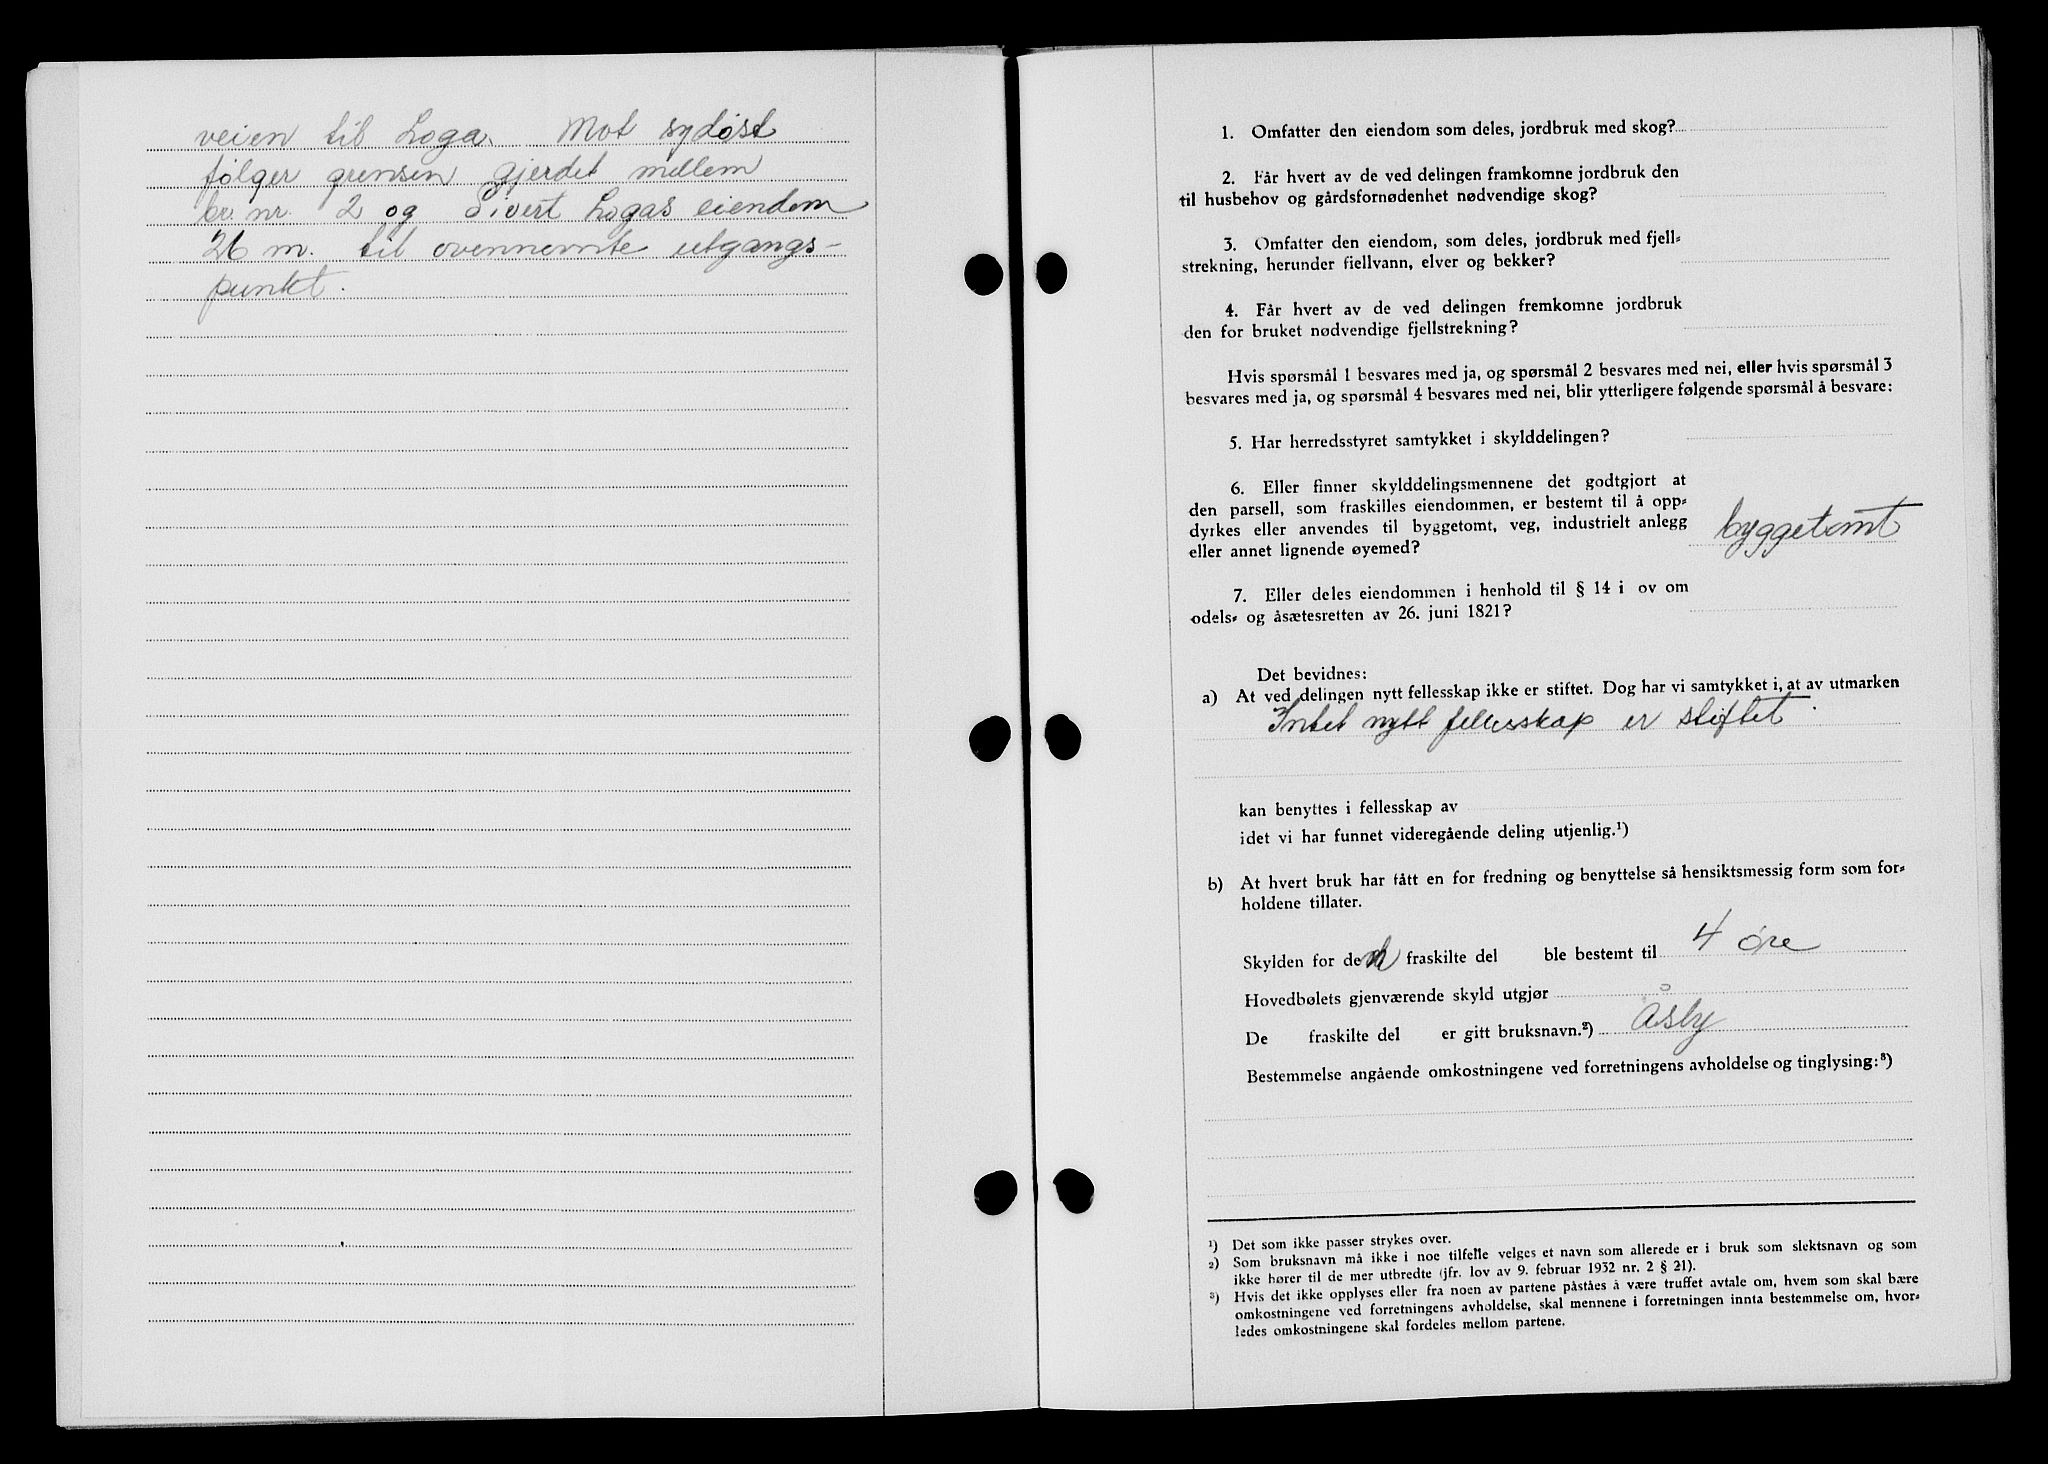 veien til Loga. Mot sydøst
følger grensen gjerdet mellem
br. nr. 2 og Sivert Logas eiendom
26 m. til ovennevnte utgangs-
punkt.
1. Omfatter den eiendom som deles, jordbruk med skog?
2. Får hvert av de ved delingen framkomne jordbruk den
til husbehov og gårdsfornødenhet nødvendige skog?
3. Omfatter den eiendom, som deles, jordbruk med fjell-
strekning, herunder fjellvann, elver og bekker?
4. Får hvert av de ved delingen fremkomne jordbruk
den for bruket nødvendige fjellstrekning?
Hvis spørsmål 1 besvares med ja, og spørsmål 2 besvares med nei, eller hvis spørsmål 3
besvares med ja, og spørsmål 4 besvares med nei, blir ytterligere følgende spørsmål å besvare:
5. Har herredsstyret samtykket i skylddelingen?
6. Eller finner skylddelingsmennene det godtgjort at
den parsell, som fraskilles eiendommen, er bestemt til å opp-
dyrkes eller anvendes til byggetomt, veg, industrielt anlegg
eller annet lignende øyemed? byggetomt
7. Eller deles eiendommen i henhold til § 14 i ov om
odels- og åsætesretten av 26. juni 1821?
Det bevidnes:
a) At ved delingen nytt fellesskap ikke er stiftet. Dog har vi samtykket i, at av utmarken
Intet nytt fellesskap er stiftet.
kan benyttes i fellesskap av
idet vi har funnet videregående deling utjenlig.¹)
b) At hvert bruk har fått en for fredning og benyttelse så hensiktsmessig form som for-
holdene tillater.
Skylden for den fraskilte del ble bestemt til 4 øre
Hovedbølets gjenværende skyld utgjør
De fraskilte del er gitt bruksnavn.²) Åsby
Bestemmelse angående omkostningene ved forretningens avholdelse og tinglysing:³)
¹) Det som ikke passer strykes over.
²) Som bruksnavn må ikke i noe tilfelle velges et navn som allerede er i bruk som slektsnavn og som
ikke hører til de mer utbredte (jfr. lov av 9. februar 1932 nr. 2 § 21).
³) Hvis det ikke opplyses eller fra noen av partene påståes å være truffet avtale om, hvem som skal bære
omkostningene ved forretningens avholdelse, skal mennene i forretningen innta bestemmelse om, hvor-
ledes omkostningene skal fordeles mellom partene.